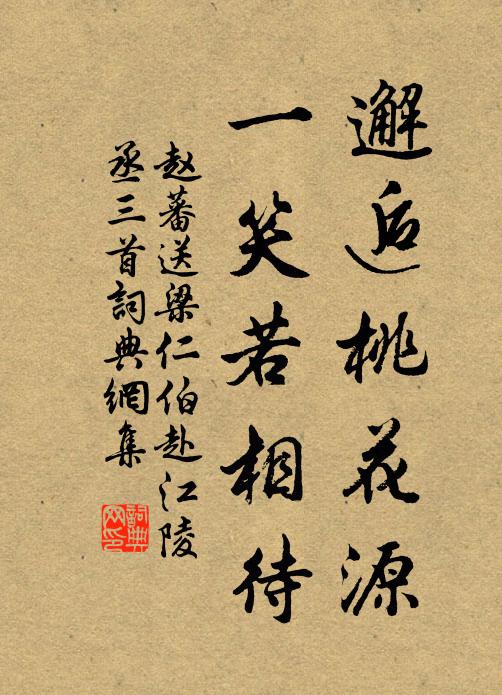 邂逅桃花源
一笑若相待
赵蕃送梁仁伯赴江陵
丞三首詞典網集
詞典
网印